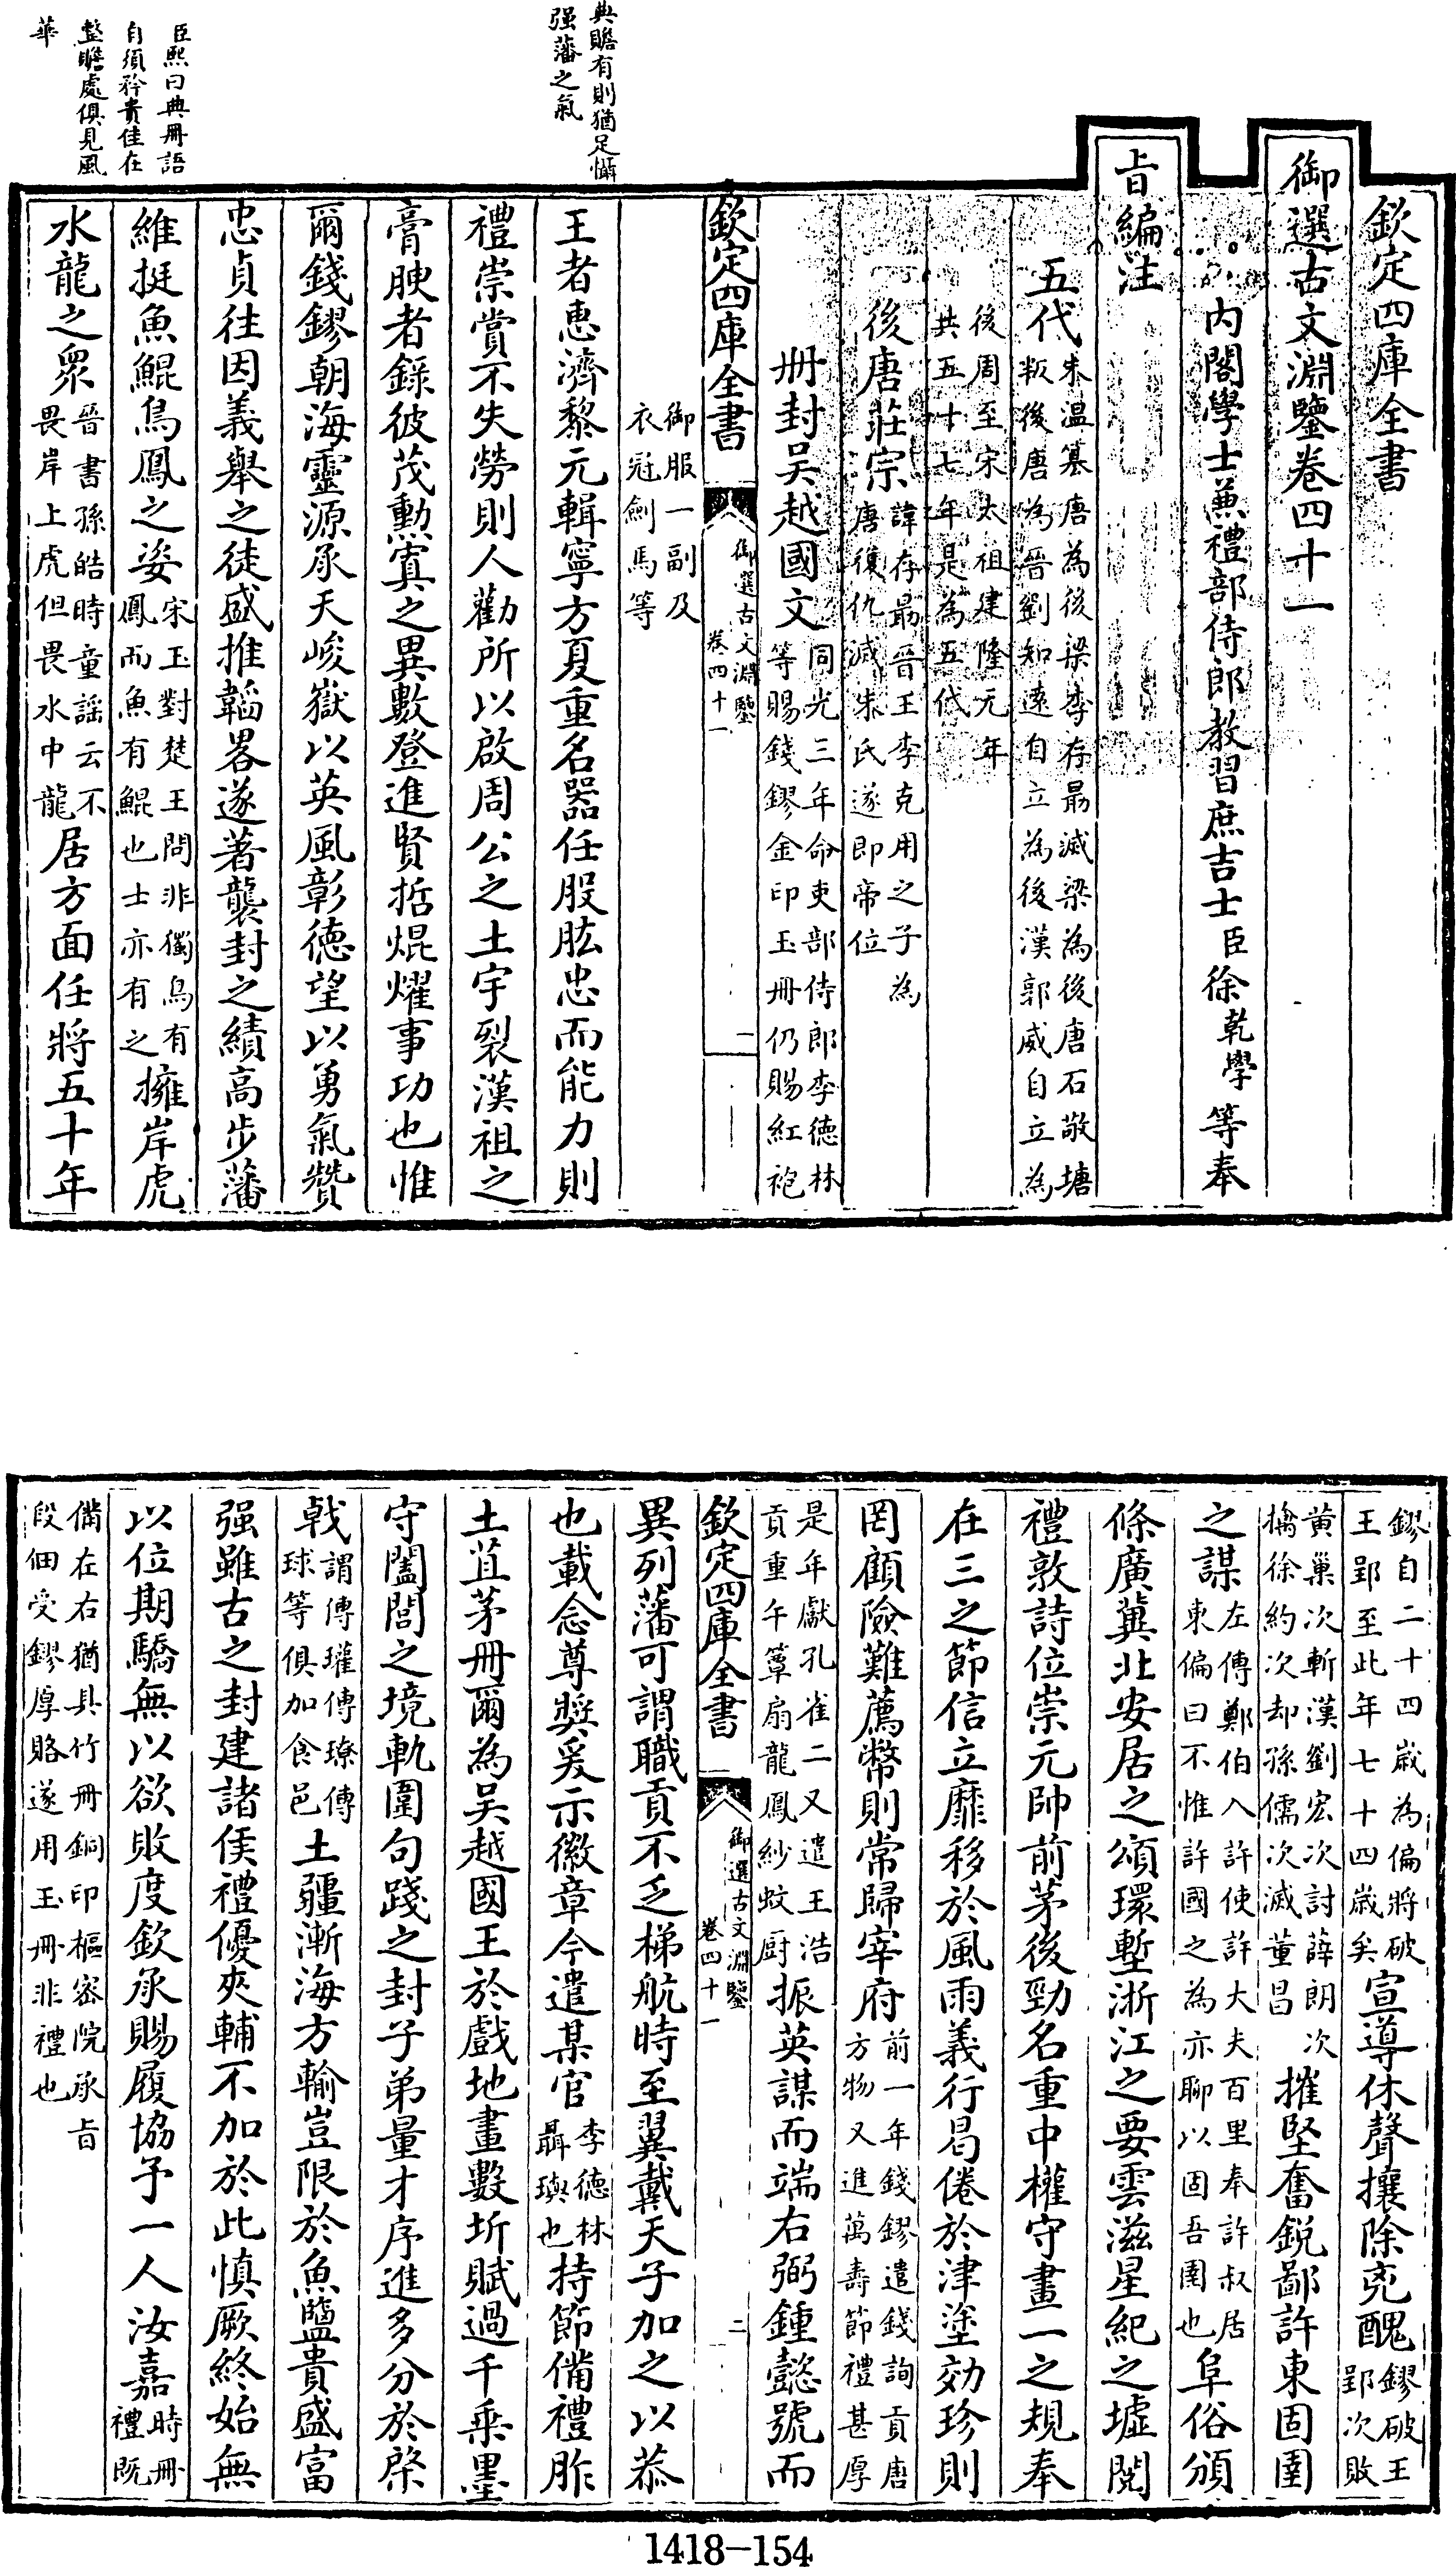 欽定四庫全書
御選古文淵鑒卷四十一
內閣學士兼禮部侍郎教習庶吉士臣徐乾學等奉
旨編注
五代朱温篡唐為後梁李存勗滅梁為後唐石敬塘叛後唐為晉劉知遠自立為後漢郭威自立為
後周至宋太祖建隆元年共五十七年是為五代
後唐莊宗諱存勗晉王李克用之子為唐復仇滅朱氏遂即帝位
册封吳越國文同光三年命吏部侍郎李德林等賜錢鏐金印玉册仍賜紅袍
欽定四庫全書
御選古文淵鑒
卷四十一
一
御服一副及衣冠劍馬等
典贍有則猶足懾
强藩之氣
王者惠濟黎元輯寧方夏重名器任股肱忠而能力則
禮崇賞不失勞則人勸所以啟周公之土宇裂漢祖之
膏腴者錄彼茂勳寘之異數登進賢哲焜燿事功也惟
爾錢鏐朝海靈源承天峻嶽以英風彰徳望以勇氣贊
忠貞往因義舉之徒盛推韜畧遂著襲封之績高步藩
臣熙曰典册語
自須矜貴佳在
整贍處俱見風
華
維挺魚鯤鳥鳳之姿宋玉對楚王問非獨鳥有鳳而魚有鯤也士亦有之擁岸虎
水龍之衆晉書孫皓時童謡云不畏岸上虎但畏水中龍居方面任將五十年
鏐自二十四歲為偏將破王郢至此年七十四歲矣宣導休聲攘除兇醜鏐破王郢次敗
黃巢次斬漢劉宏次討薛朗次擒徐約次却孫儒次滅董昌摧堅奮銳鄙許東固圉
之謀左傳鄭伯入許使許大夫百里奉許叔居東偏曰不惟許國之為亦聊以固吾圉也阜俗頒
條廣冀北安居之頌環塹浙江之要雲滋星紀之墟閱
禮敦詩位崇元帥前茅後勁名重中權守畫一之規奉
在三之節信立靡移於風雨義行曷倦於津塗効珍則
罔顧險難薦幣則常歸宰府前一年錢鏐遣錢詢貢唐方物又進萬壽節禮甚厚
是年獻孔雀二又遣王浩貢重午簟扇龍鳳紗蚊厨振英謀而端右弼鍾懿號而
欽定四庫全書
御選古文淵鑒
卷四十一
二
異列藩可謂職貢不乏梯航時至翼戴天子加之以恭
也載念尊奬爰示徽章今遣某官李德林聶璵也持節備禮胙
土苴茅册爾為吳越國王於戲地畫數圻賦過千乘墨
守闔閭之境軌圍句踐之封子弟量才序進多分於棨
戟謂傳瓘傳璙傳球等俱加食邑土疆漸海方輸豈限於魚鹽貴盛富
强雖古之封建諸侯禮優夾輔不加於此慎厥終始無
以位期驕無以欲敗度欽承賜履協予一人汝嘉時册禮既
備在右猶具竹册銅印樞密院承旨段佃受鏐厚賂遂用玉册非禮也
1418-154